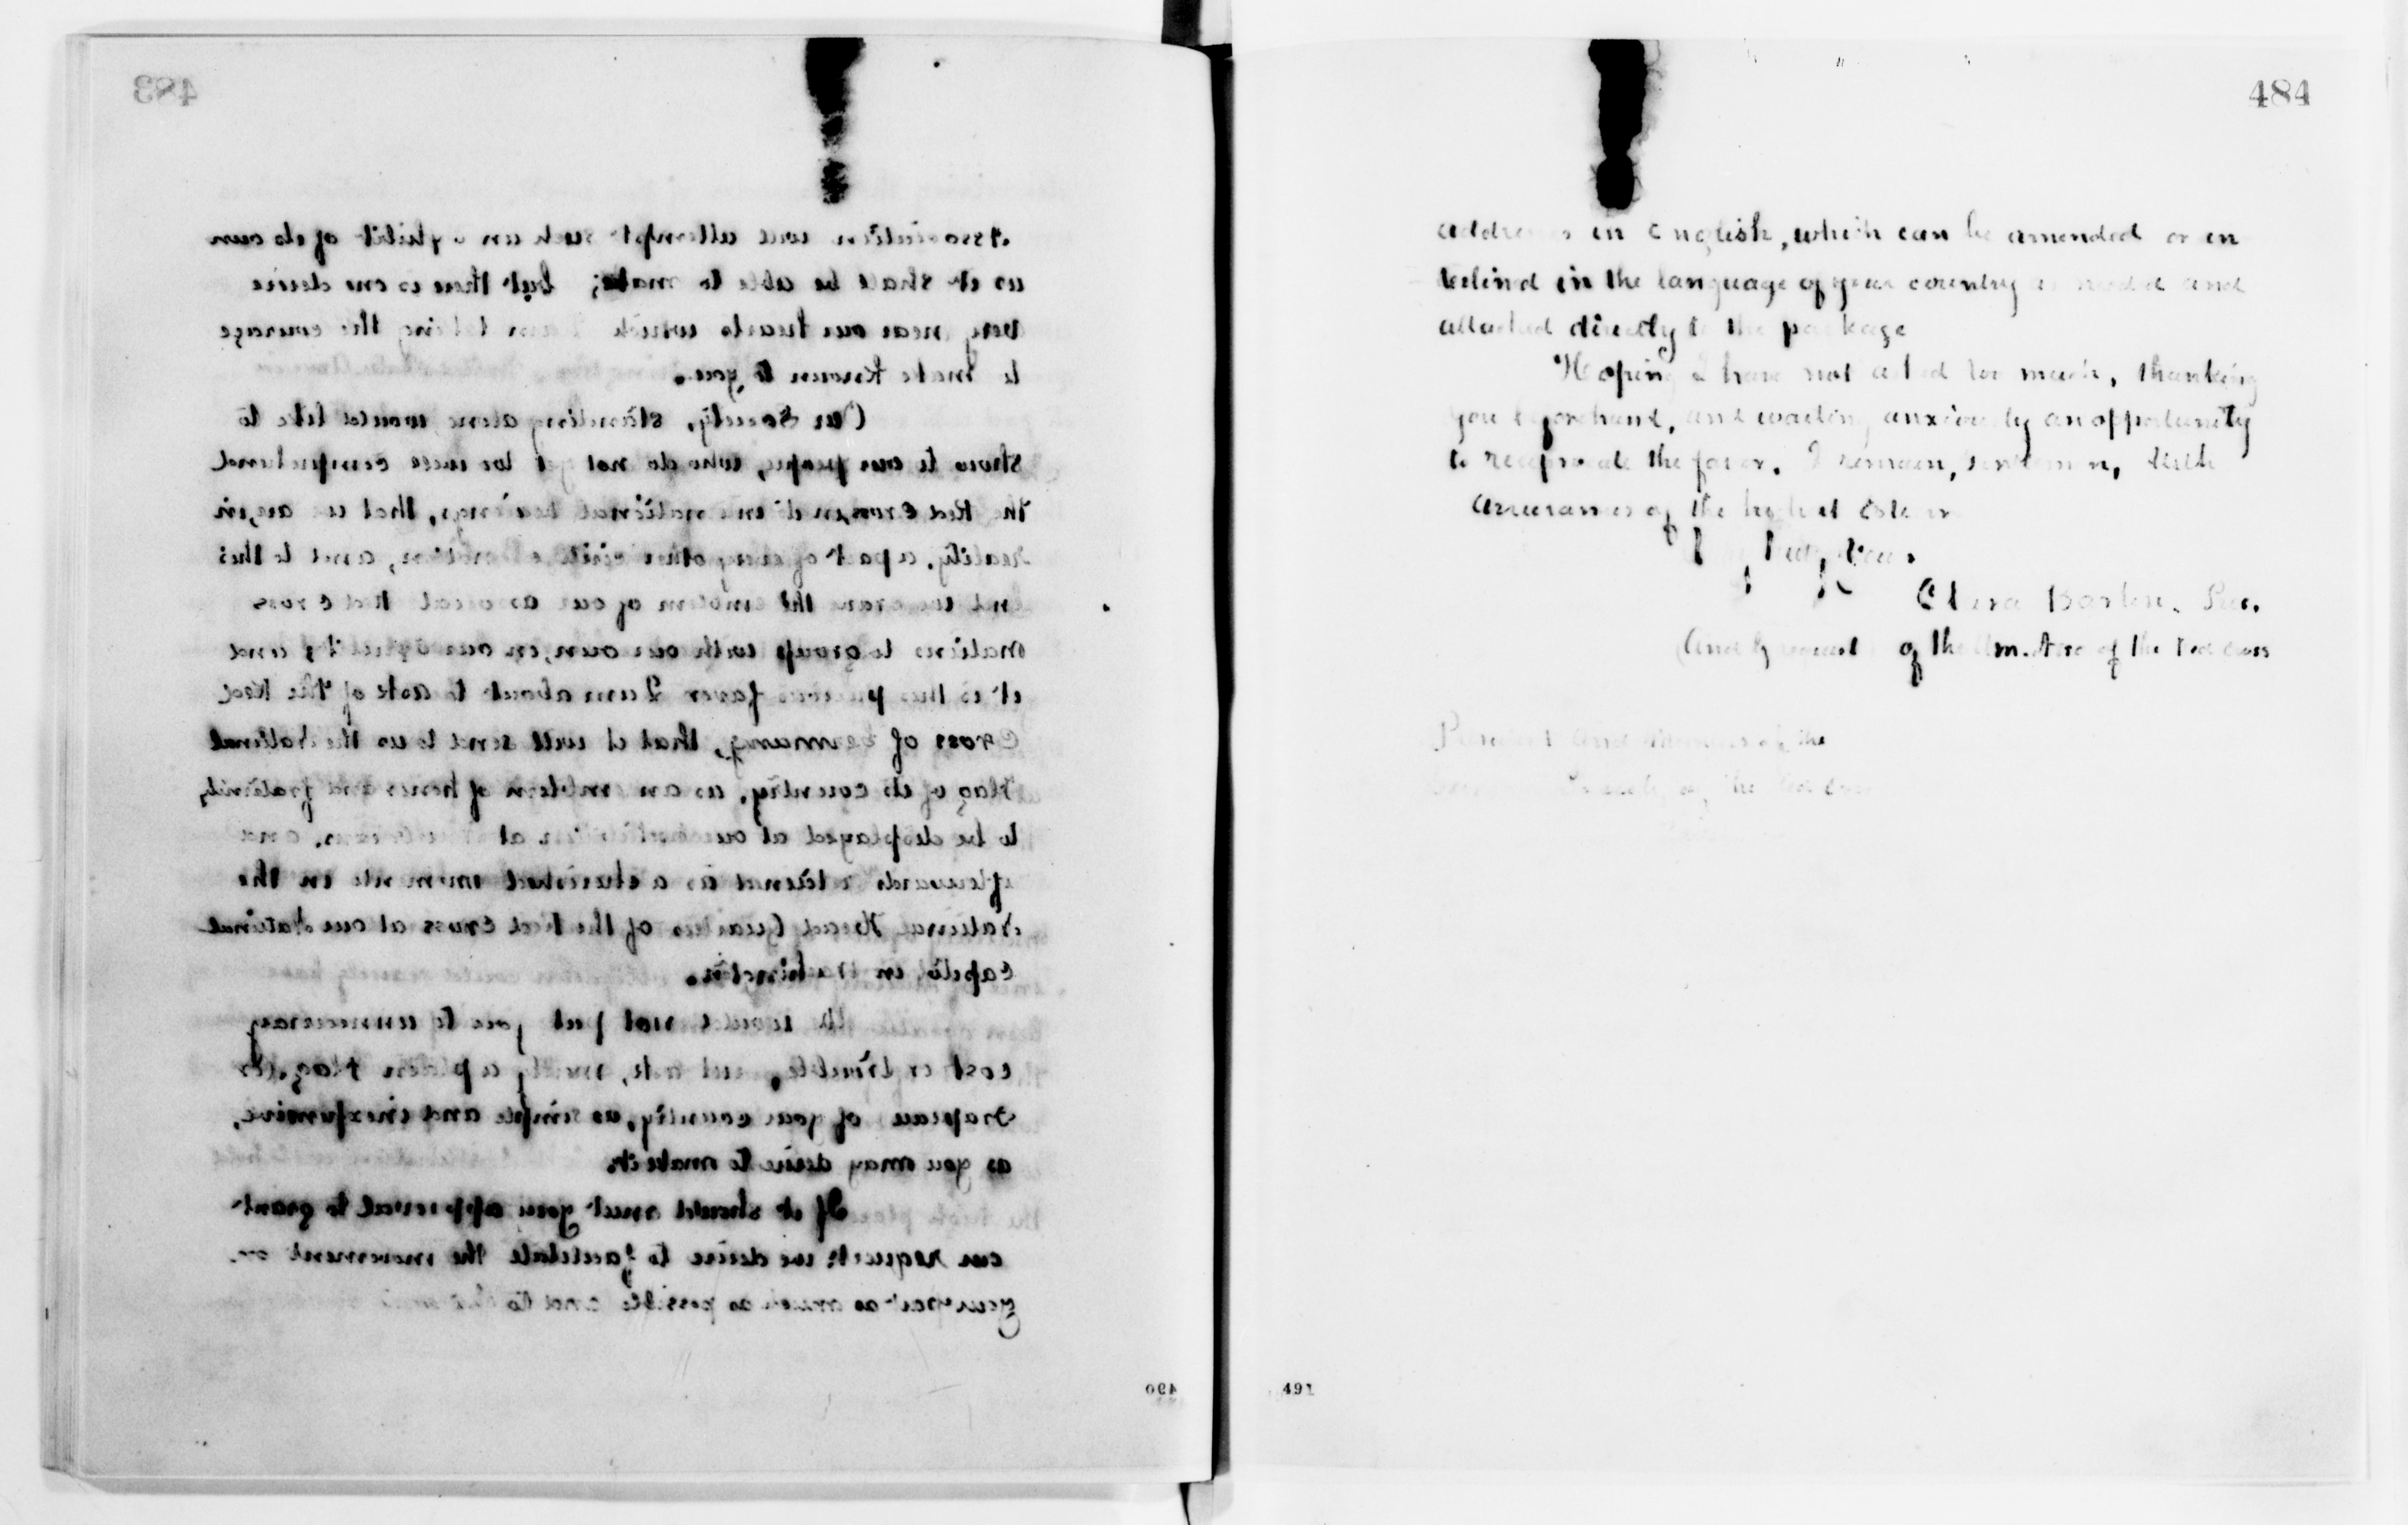 483
Association will attempt such an exhibit of its own
as it shall be able to make; but there is one desire
very near our hearts which I am taking the courage
to make known to you.
Our Society, standing alone, would like to
show to our people, who do not yet too well comprehend
the Red Cross in its international bearings, that we are, in
reality, a part of every other civilized nation, and to this
end we crave the emblem of our associate Red Cross
nations to group with our own, in our exhibit, and
it is this precious favor I am about to ask of the Red
Cross of Germany, that it will send to us the National
Flag of its country, as an emblem of honor and fraternity,
to be displayed at our exhibition at and
afterwards retained as a cherished memento in the
National Head Quarters of the Red Cross at our National
Capitol in Washington.
We would not put you to unnecessary
cost or trouble, but ask, simply a plain Flag, or
Drapeau of your country, as simple and inexpensive,
as you may desire to make it.
If it should meet your approval to grant
our request we desire to facilitate the movement on
your part as much as possible and to this end
490
484
address in English, which can be amended or en
in the language of your country as needed and
attached directly to the package
Hoping I have not asked too much, thanking
you beforehand, and waiting anxiously an opportunity
to reciprocate the favor, I remain, Gentlemen, with
assurances of the highest esteem
Very truly Yours
Clara Barton. Pres.
of the Am. Asso of the Red Cross
President and Members of the
of the Red Cross
491